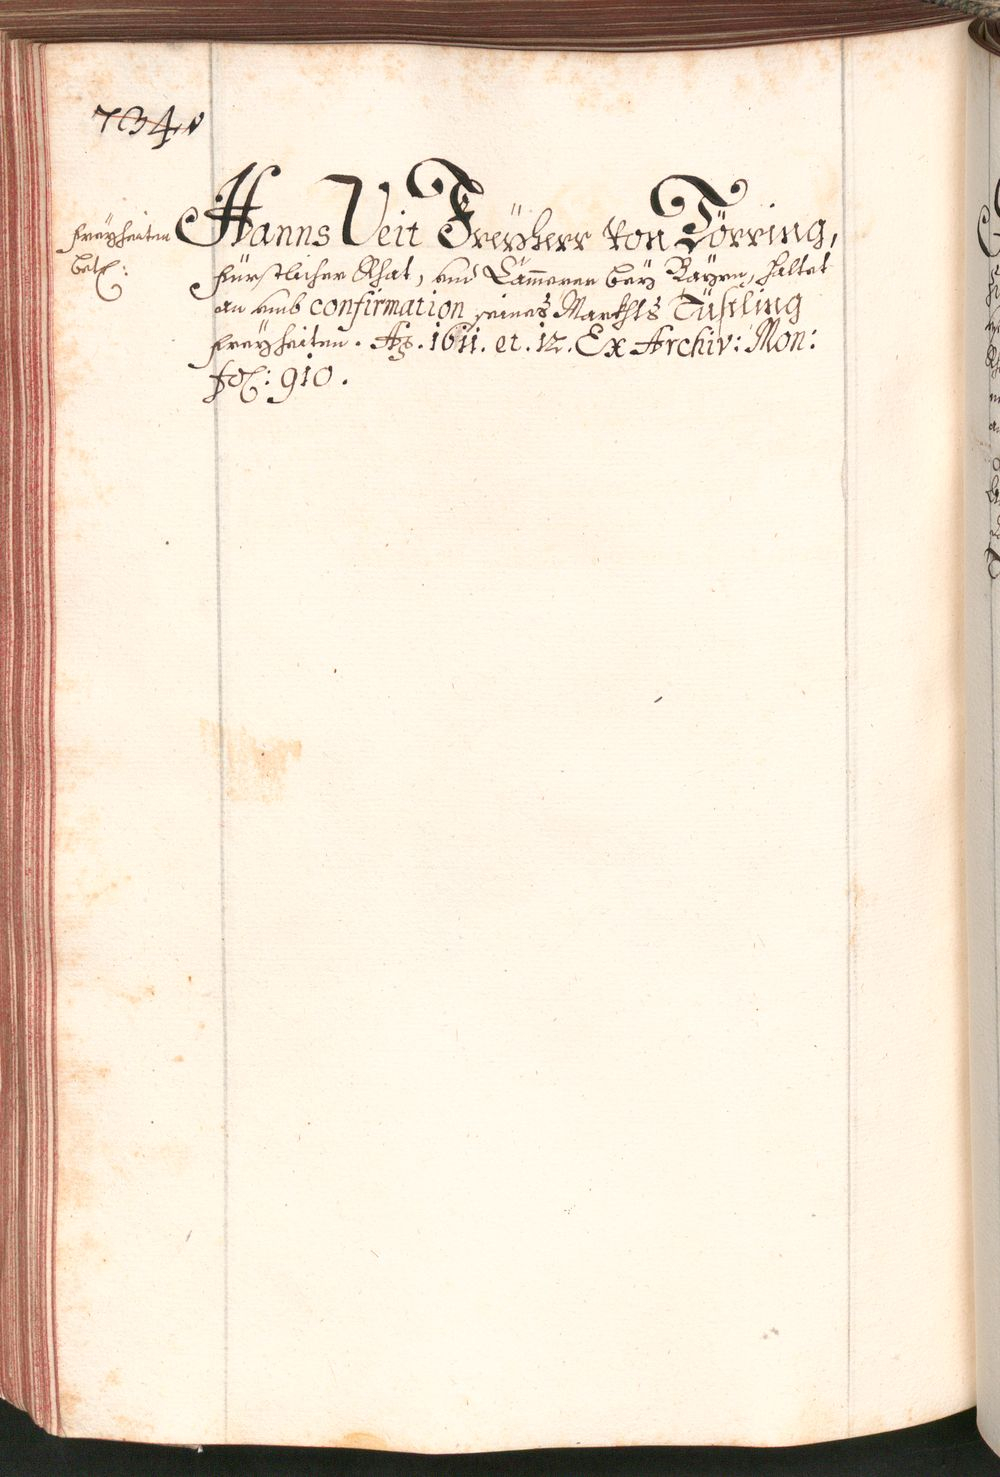 734.
Freÿheiten
betr:
Hanns Veit Freÿherr von Törring,
Fürstlicher Rhat, und Cam̄erer beÿ Bayrn, haltet
an umb confirmation seines Markhts Tüßling
Freÿheiten. Aō. 1611. et. 12. Ex Archiv: Mon:
fol: 910.